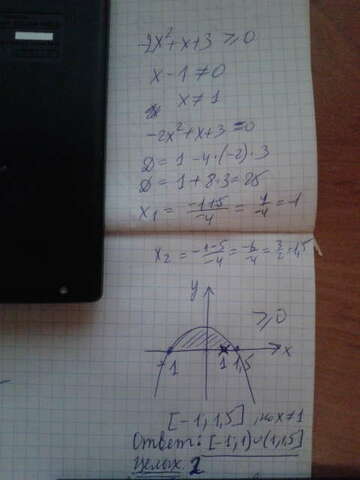 -2x²+x+3 ≥0
x-1≠0
x≠1
-2x²+x+3=0
D=1-4·(-2)·3
D=1+8·3=25
x₁=(-1+5)/-4=4/-4=-1
x₂=(-1-5)/-4=-6/-4=3/2=1,5
y
≥0
-1 1 1,5 x
[-1,1,5], но x≠1
Ответ: [-1,1)∪(1,1,5]
Целых 2